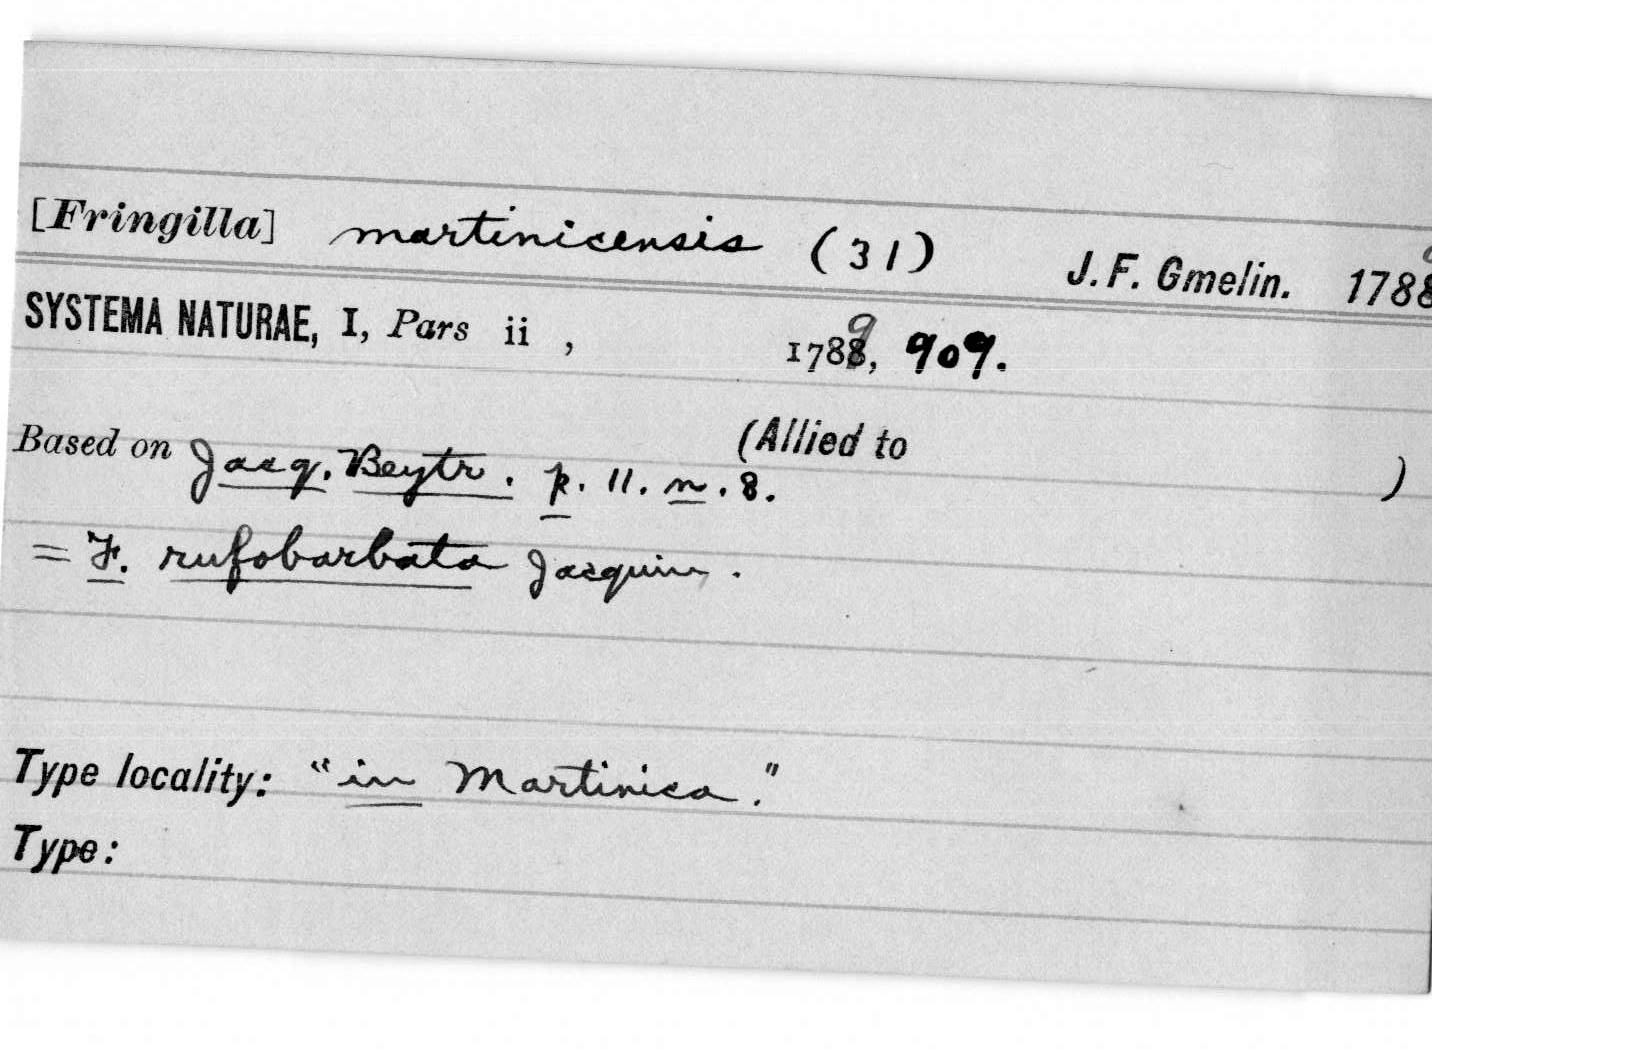 [Fringilla] martinicensis (31) J. F. Gmelin. 1788
SYSTEMA NATURAE, I, Pars ii , 1789, 909.
Based on Jacq. Beytr. p. 11. n. 8. (Allied to )
= F. rufobarbata Jacquin.
Type locality: "in Martinica."
Type: